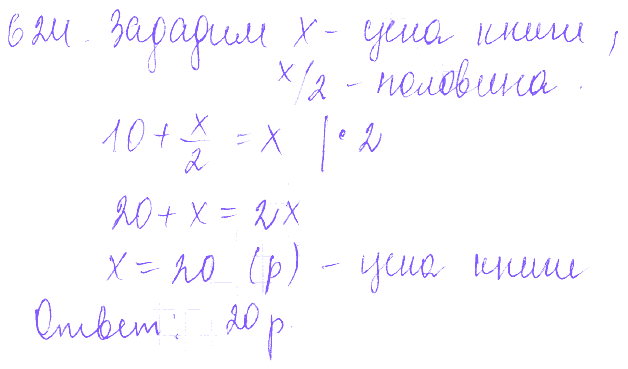 624. Зададим x - цена книги,
x/2 - половина.
10 + x/2 = x |·2
20 + x = 2x
x = 20 (р) - цена книги
Ответ: 20 р.